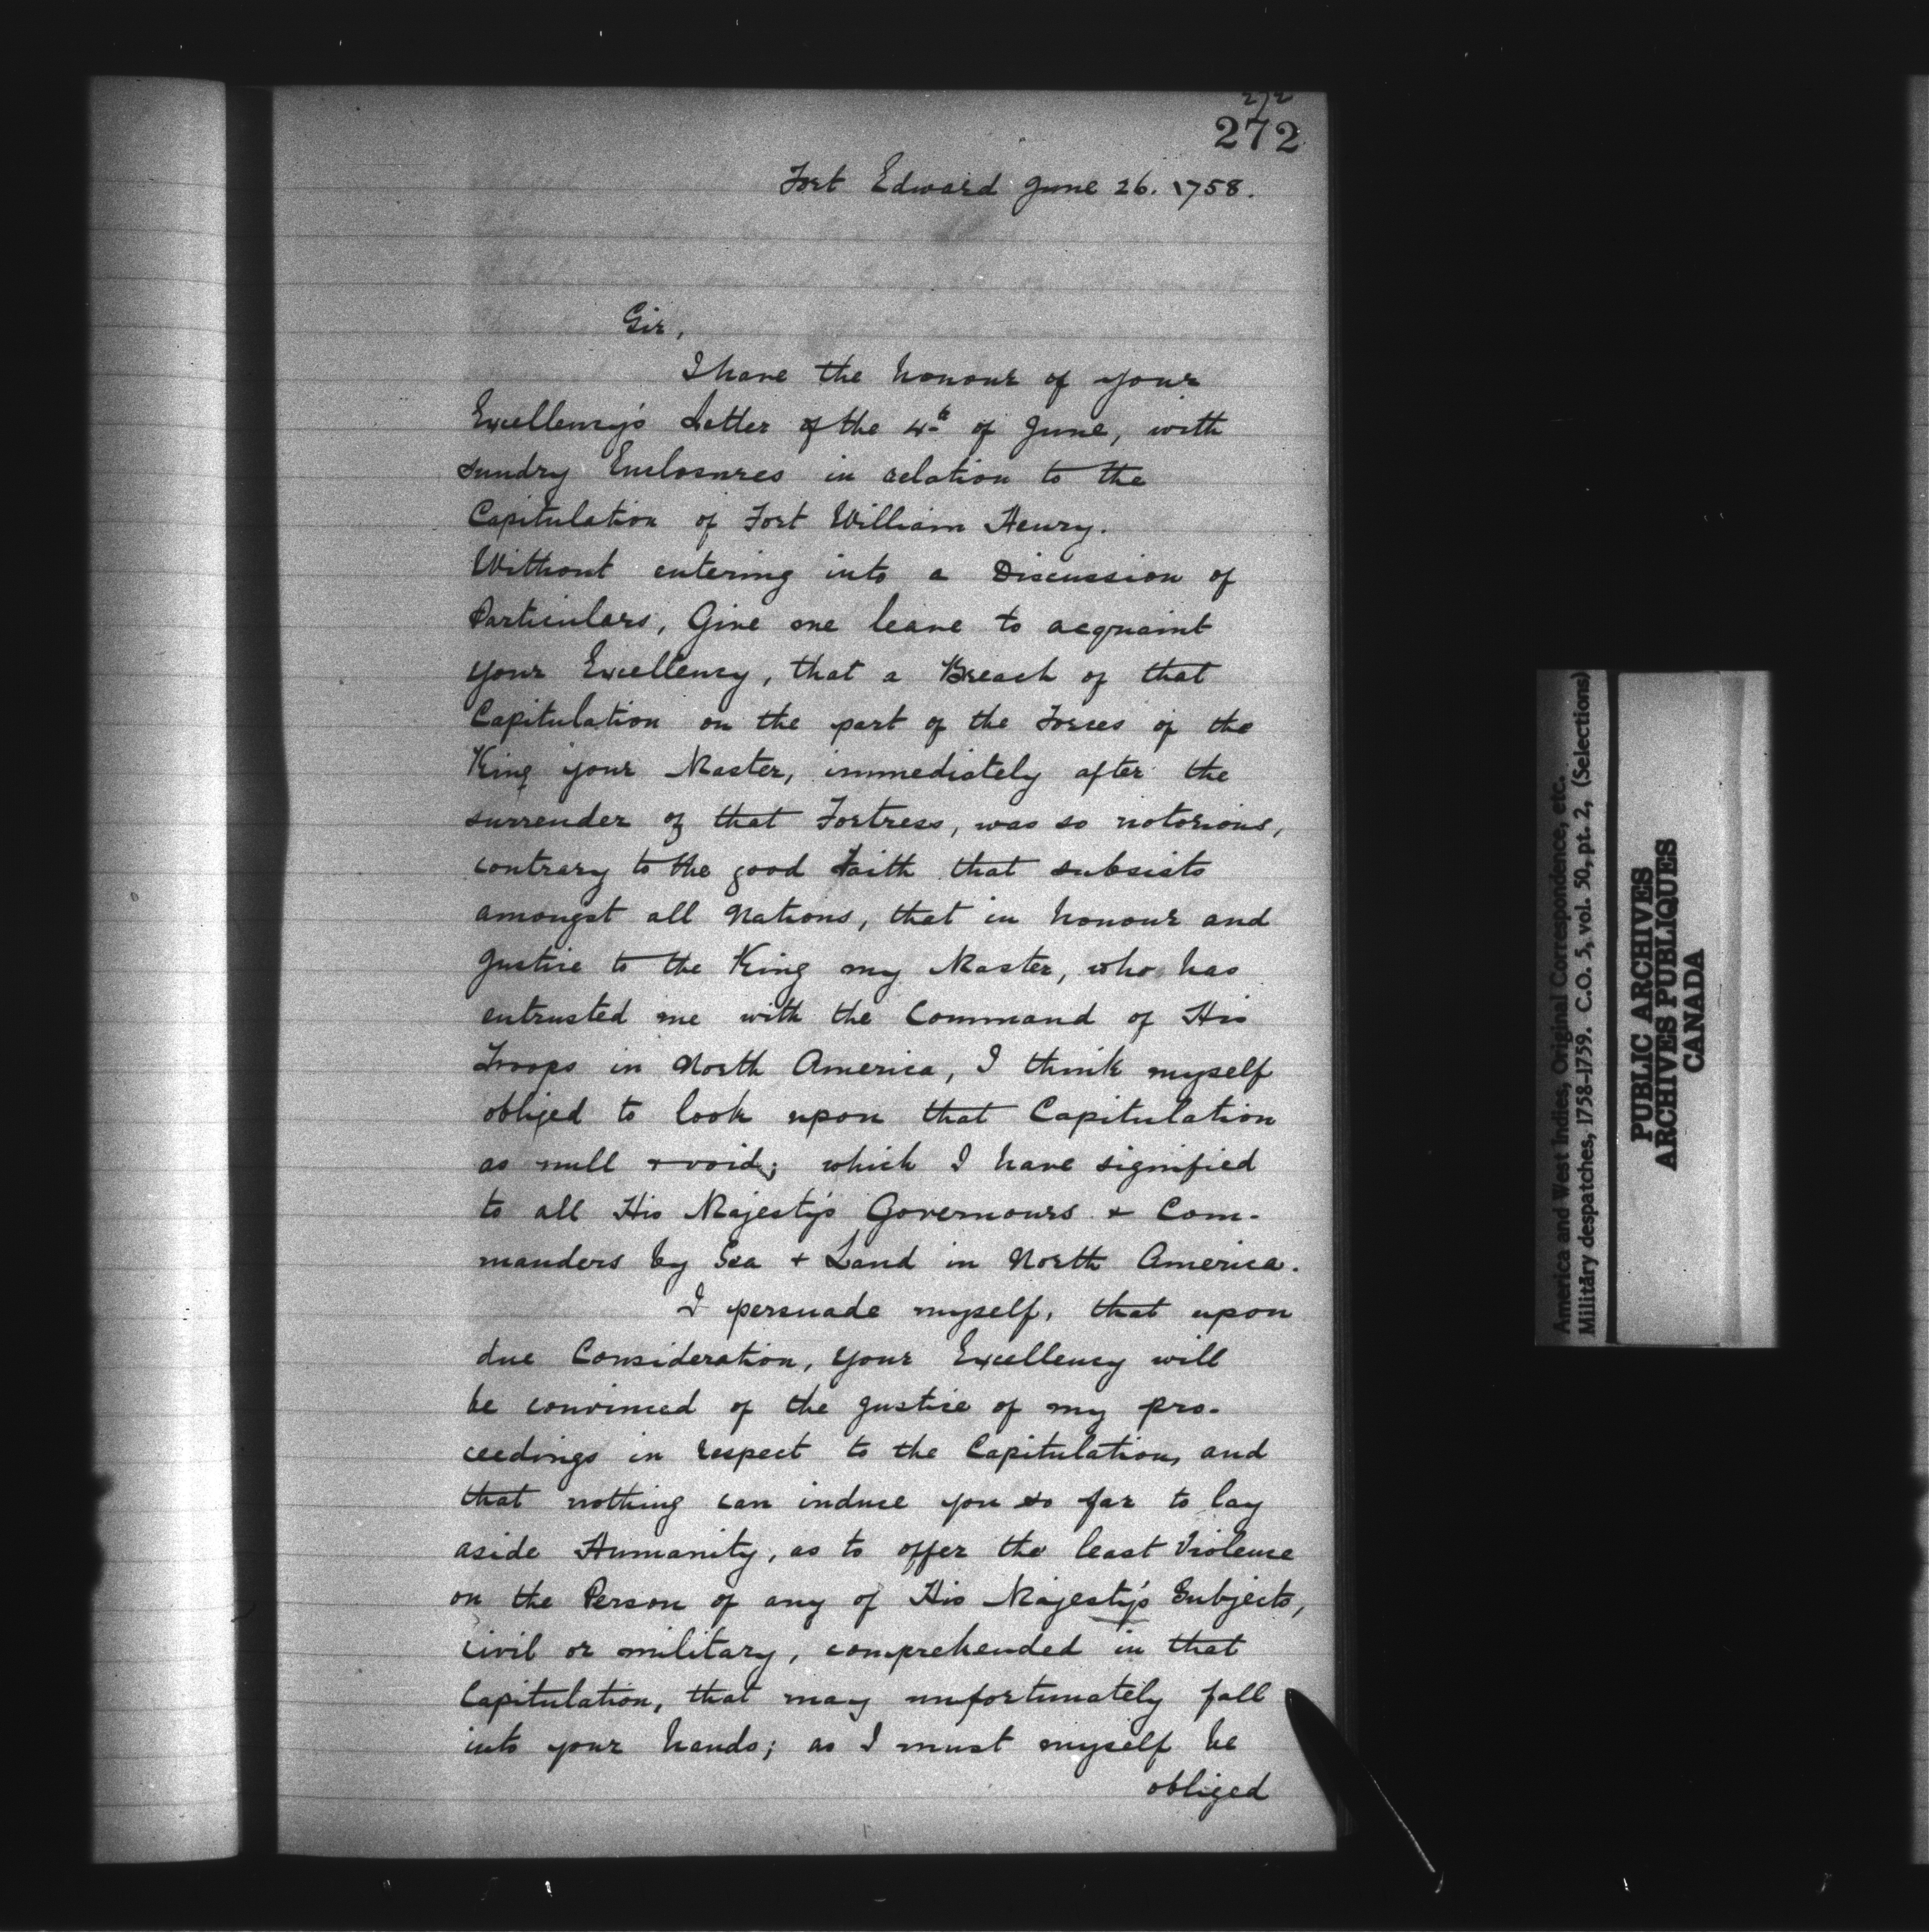 272
272
Fort Edward June 26. 1758.
Sir,
I have the honour of your
Excellency's Letter of the 4th of June, with
sundry Enclosures in relation to the
Capitulation of Fort William Henry.
Without entering into a Discussion of
Particulars, Give me leave to acquaint
your Excellency, that a Breach of that
Capitulation on the part of the Forces of the
King your Master, immediately after the
surrender of that Fortress, was so notorious,
contrary to the good Faith that subsists
amongst all Nations, that in honour and
Justice to the King my Master, who has
entrusted me with the Command of His
Troops in North America, I think myself
obliged to look upon that Capitulation
as null & void; which I have signified
to all His Majesty's Governours & Com-
manders by Sea & Land in North America.
I persuade myself, that upon
due Consideration, your Excellency will
be convinced of the Justice of my pro-
ceedings in respect to the Capitulation, and
that nothing can induce you so far to lay
aside Humanity, as to offer the least Violence
on the Person of any of His Majesty's Subjects,
civil or military, comprehended in that
Capitulation, that may unfortunately fall
into your hands; as I must myself be
obliged
America and West Indies, Original Correspondence, etc.
Military despatches, 1758-1759. C.O. 5, vol. 50, pt. 2, (Selections)
PUBLIC ARCHIVES
ARCHIVES PUBLIQUES
CANADA